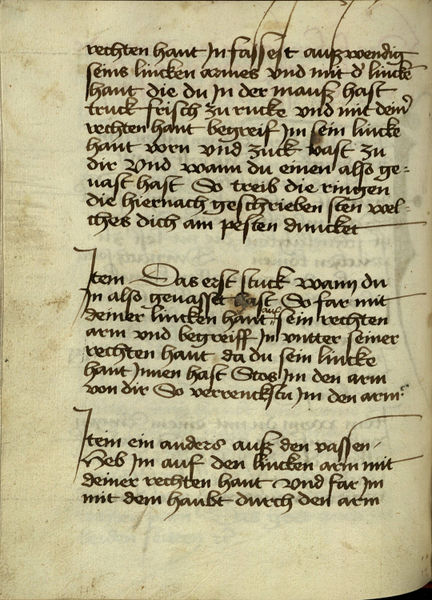 rechten hant Jn fassest außwendig
seins lincken armes vnd mit d' lincke
hant die du Jn der mauß hast
truck frisch zu rucke vnd mit deiner
rechten hant begreif Jm sein lincke
hant vorn vnd zuck vast zu
dir Vnd wann du einen also ge=
uast hast So treib die ringen
die hiernach geschrieben sten wel=
ches dich am pesten duncket
Jtem Das erst stuck wann du
Jn also geuasset hast So far mit
deiner lincken hant auf sein rechten
arm vnd begreiff Jn vntter seiner
rechten hant da du sein lincke
hant Jnnen hast Stos Jm den arm
von dir So verrenckstu Jm den arm
Jtem ein anders auß den vassen
Heb Jm auf den lincken arm mit
deiner rechten hant Vnd far Jm
mit dem haubt durch den arm